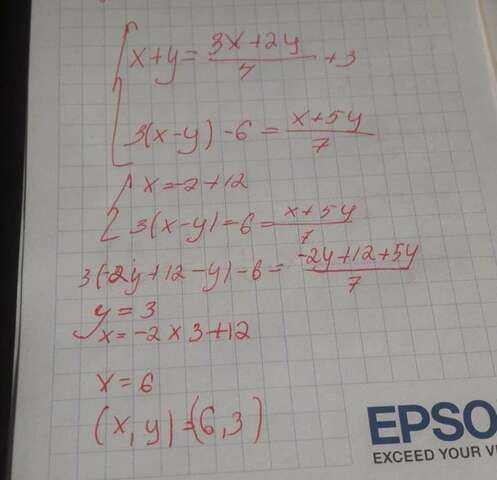 x+y=\frac{3x+2y}{4}+3
3(x-y)-6=\frac{x+5y}{7}
x=-2+12
3(x-y)-6=\frac{x+5y}{7}
3(-2y+12-y)-6=\frac{-2y+12+5y}{7}
y=3
x=-2×3+12
x=6
(x,y)=(6,3)
EPSO
EXCEED YOUR V